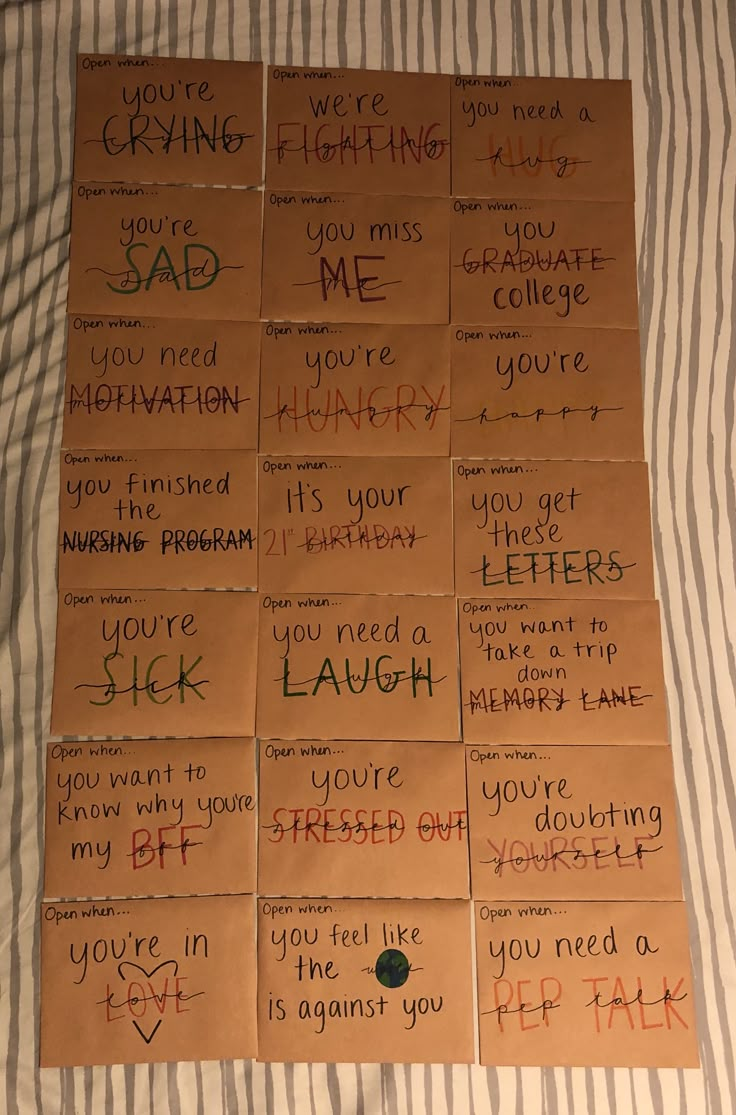 Open when...
you're
CRYING
Open when...
we're
FIGHTING
Open when...
you need a
HUG
Open when...
you're
SAD
Open when...
you miss
ME
Open when...
you
GRADUATE
college
Open when...
you need
MOTIVATION
Open when...
you're
HUNGRY
Open when...
you're
happy
Open when...
you finished
the
NURSING PROGRAM
Open when...
it's your
21st BIRTHDAY
Open when...
you get
these
LETTERS
Open when...
you're
SICK
Open when...
you need a
LAUGH
Open when...
you want to
take a trip
down
MEMORY LANE
Open when...
you want to
know why you're
my BFF
Open when...
you're
STRESSED OUT
Open when...
you're
doubting
YOURSELF
Open when...
you're in
LOVE
Open when...
you feel like
the world
is against you
Open when...
you need a
PEP TALK